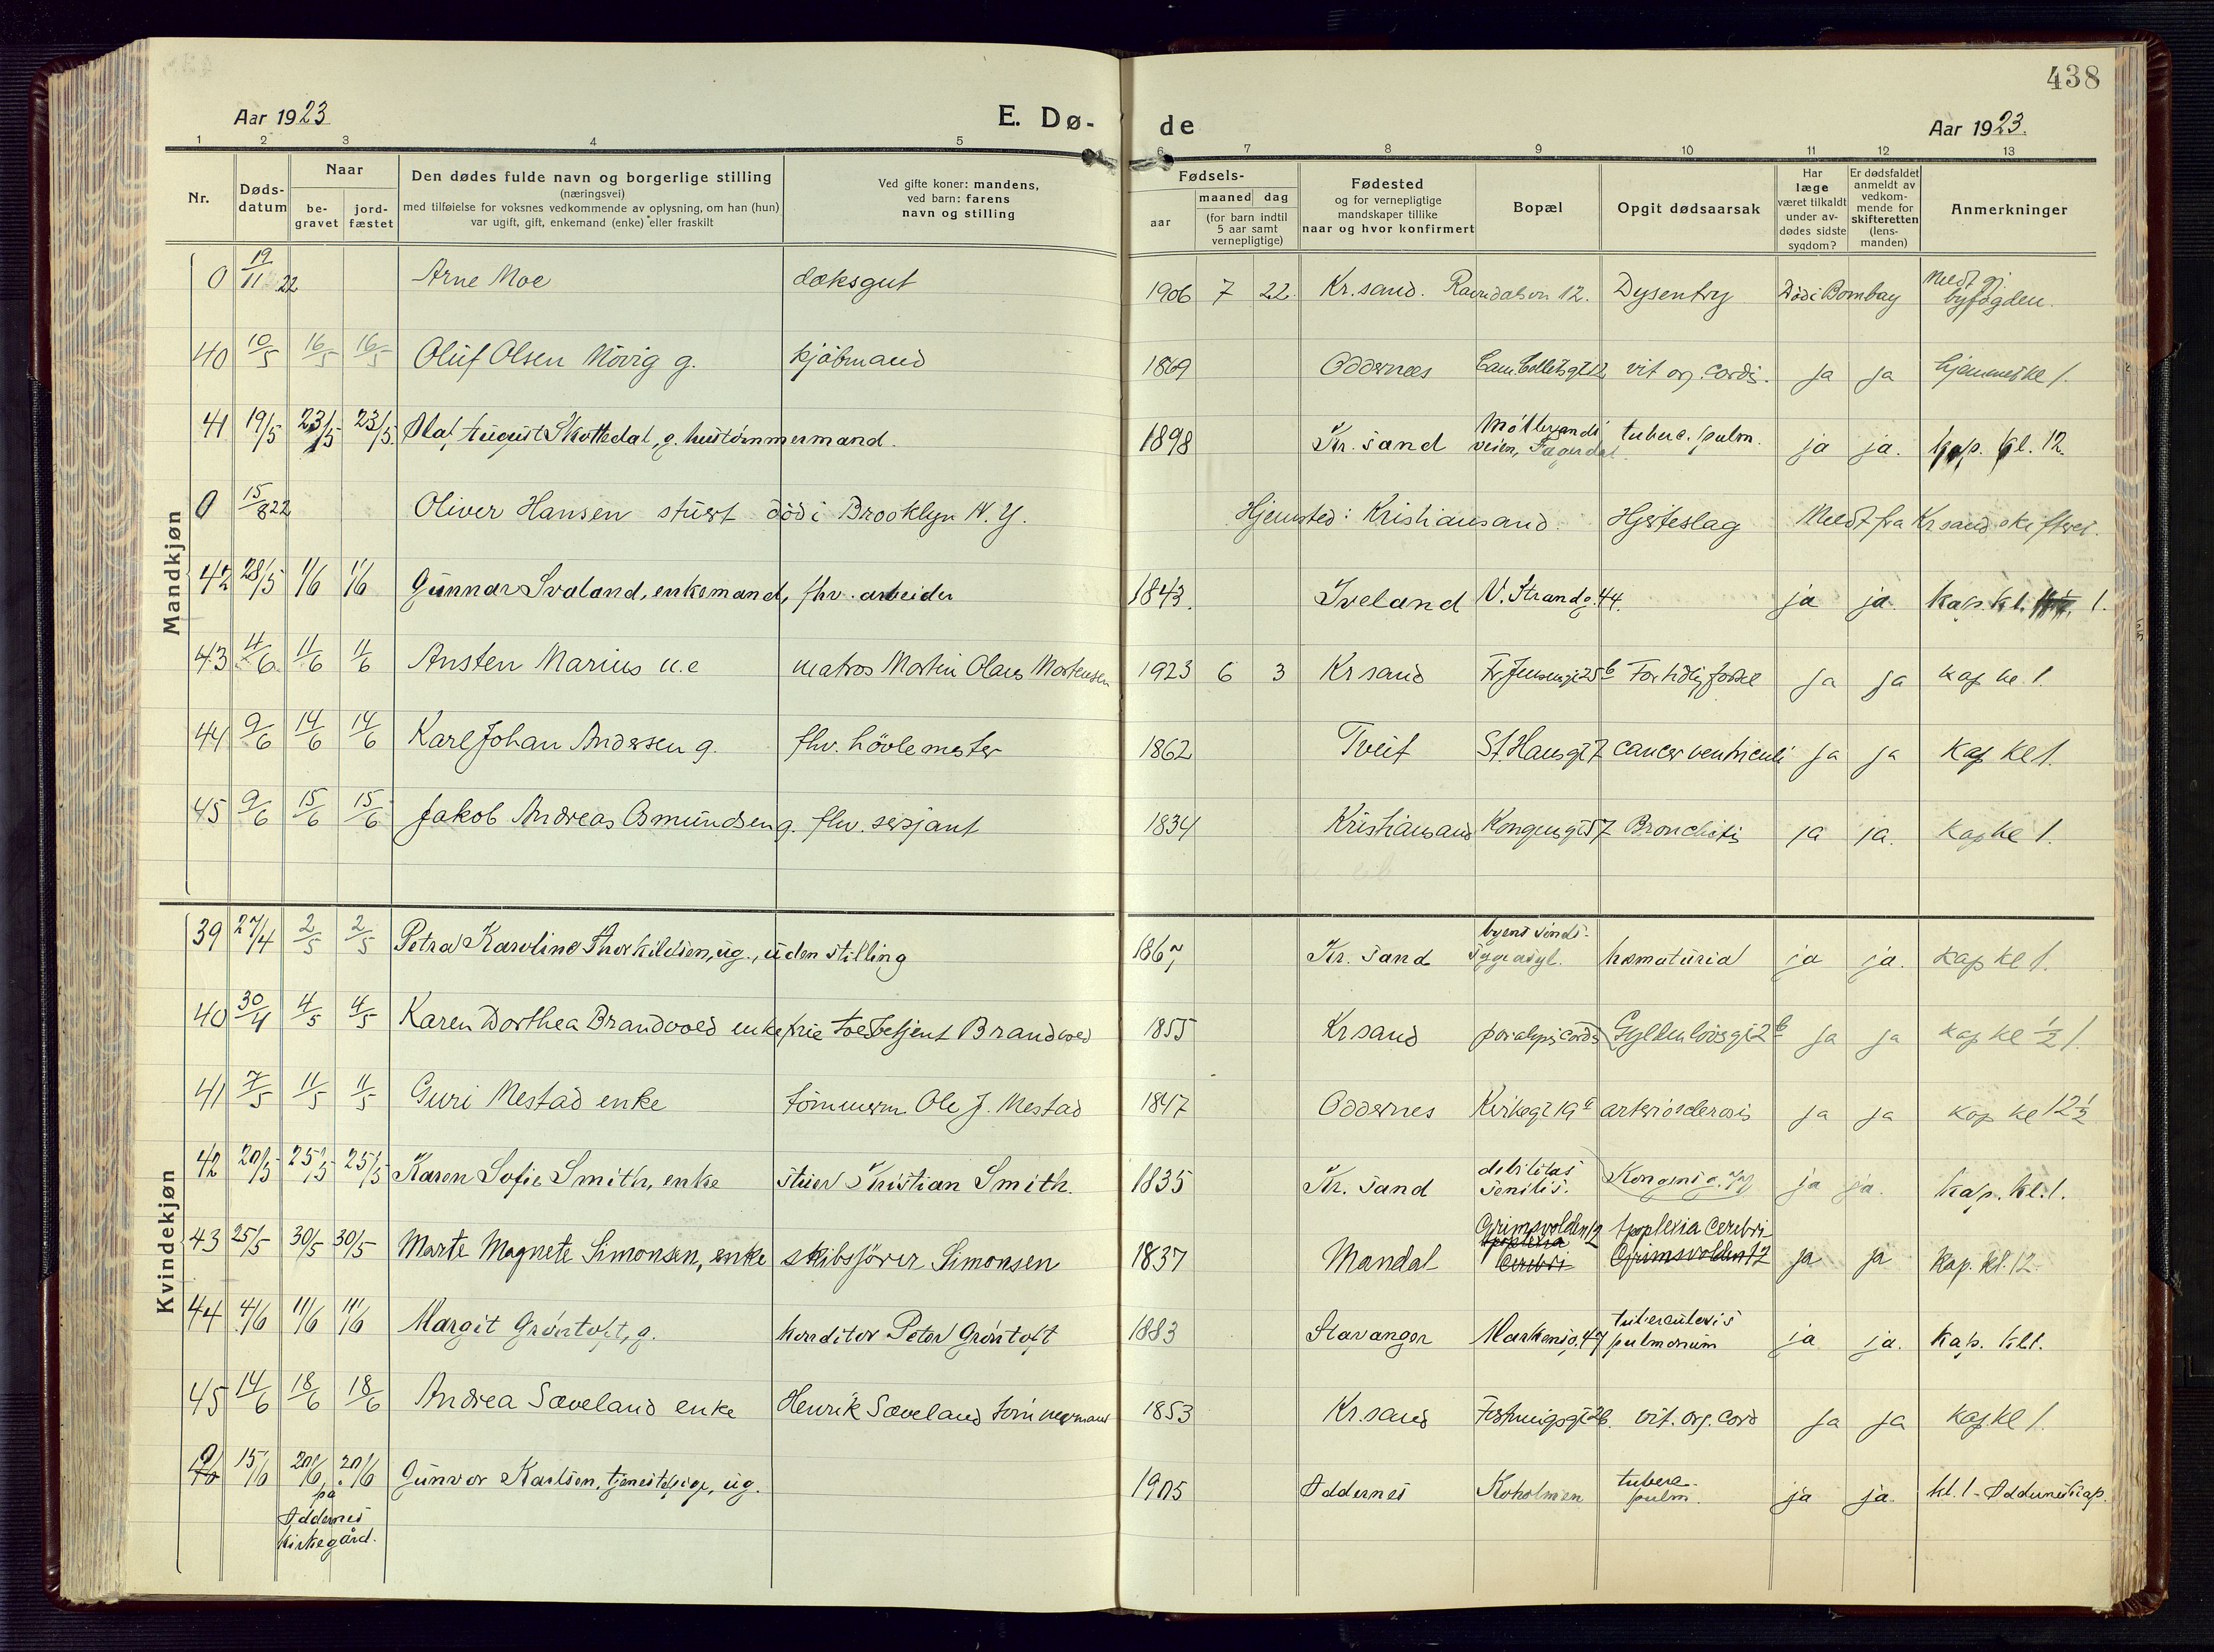 438
Aar 1923
E. Dø-
de
Aar 1923.
1 2 3 4 5 6 7 8 9 10 11 12 13
Nr.
Døds-
datum
Naar
be-
gravet
jord-
fæstet
Den dødes fulde navn og borgerlige stilling
(næringsvei)
med tilføielse for voksnes vedkommende av oplysning, om han (hun)
var ugift, gift, enkemand (enke) eller fraskilt
Ved gifte koner: mandens,
ved barn: farens
navn og stilling
Fødsels-
aar
maaned dag
(for barn indtil
5 aar samt
vernepligtige)
Fødested
og for vernepligtige
mandskaper tillike
naar og hvor konfirmert
Bopæl
Opgit dødsaarsak
Har
læge
været tilkaldt
under av-
dødes sidste
sygdom?
Er dødsfaldet
anmeldt av
vedkom-
mende for
skifteretten
(lens-
manden)
Anmerkninger
Mandkjøn
0 19/11 22 Arne Moe dæksgut 1906 7 22. Kr.sand. 12. Dysentry Død i Bombay Meldt gj. byfogden.
40 10/5 16/5 16/5 Oluf Olsen Növig g. kjöbmand 1869 Oddernes Cam. Colletsgt 12 vit org. cordis. ja ja hjemmet kl 1.
41 19/5 23/5 23/5 Olaf August Skottedal, g. hustømmermand. 1898 Kr. sand Møllevands veien, tuberc. pulm. ja ja. kap. kl. 12.
0 15/8 22 Oliver Hansen stuert död i Brooklyn N. Y. Hjemsted: Kristiansand. Hjerteslag Meldt fra Kr sand skifteret.
42 28/5 1/6 1/6 Gunnar Svaland, enkemand, fhv. arbeider 1843. Iveland V. Strandg. 44. ja ja kap. kl. 1.
43 4/6 11/6 11/6 Ansten Marius u.e matros Martin Olaus Mortensen 1923 6 3 Kr sand Fr. Jensensgt 25 b For tidlig fødsel ja ja kap kl. 1.
44 9/6 14/6 14/6 Karl Johan Andersen g. fhv. hövlemester 1862 Tveit St. Hansgt 7 cancer ventriculi ja ja kap kl 1.
45 9/6 15/6 15/6 Jakob Andreas Osmundsen g. fhv. sersjant 1834 Kristiansand Kongensgt 57 Bronchitis ja ja. kap kl 1.
Kvindekjøn
39 27/4 2/5 2/5 Petra Karoline Thorkildsen, ug., uden stilling 186 Kr. sand byens sinds- sygeasyl. hæmaturia ja ja. kap kl 1.
40 30/4 4/5 4/5 Karen Dorthea Brandvold enke frie toldbetjent Brandvold 1855 Kr sand paralysis cordis Gyldenlövesgt 2 b ja ja kap kl ½ 1.
41 7/5 11/5 11/5 Guri Mestad enke tömmerm. Ole J. Mestad 1847 Oddernes Kirkegt 19 a arteriosclerosis ja ja kap kl 12½
42 20/5 25/5 25/5 Karen Sofie Smith, enke stuer Kristian Smith. 1835 Kr. sand debilitas senilis. Kongensg. ja ja. kap. kl. 1.
43 25/5 30/5 30/5 Marte Magnete Simonsen, enke skibsfører Simonsen 1837 Mandal Grimsvolden 12 Apoplexia Cerebri Apoplexia Cerebri Grimsvolden 12 ja ja kap. kl. 12.
44 4/6 11/6 11/6 Margit Grøntoft, g. konditor Peter Grøntoft 1883 Stavanger Markensg. 49 tuberculosis pulmonum ja ja. kap. kl 1.
45 14/6 18/6 18/6 Andrea Sæveland enke Henrik Sæveland tömmermand 1853 Kr. sand Festningsgt 26. vit. org. cord ja ja kap kl 1.
0 15/6 20/6 20/6 Gunvor Karlsen, tjenestepige, ug. 1905 Oddernes Koholmen tuberc. pulm. ja ja. kl. 1 - Oddernes kap.
på
Oddernes
kirkegård.